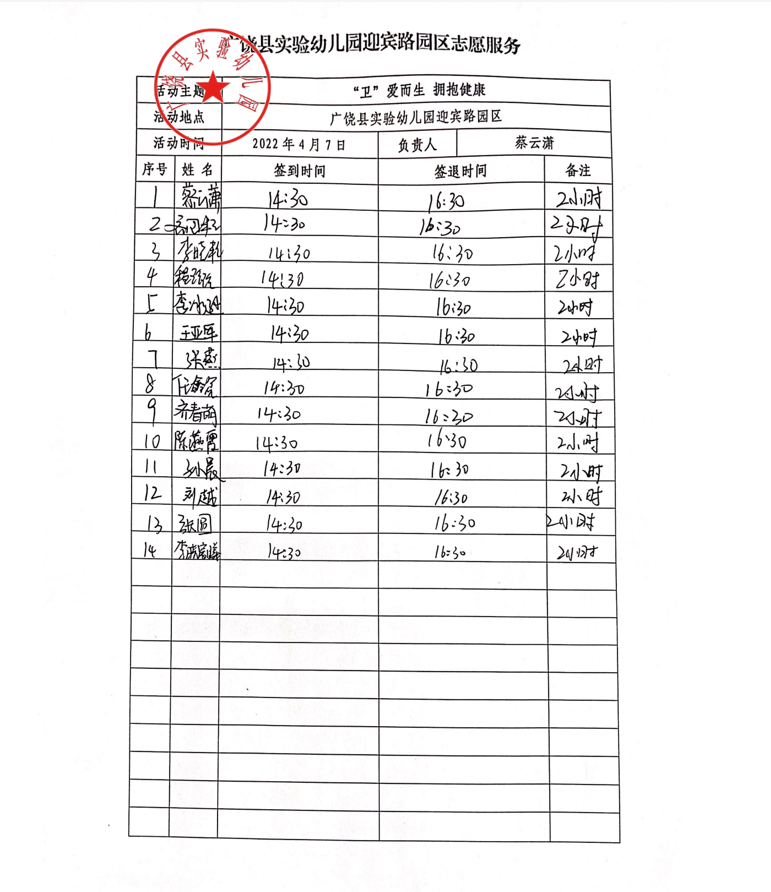 广饶县实验幼儿园迎宾路园区志愿服务
广饶县实验幼儿园
活动主题 “卫”爱而生 拥抱健康
活动地点 广饶县实验幼儿园迎宾路园区
活动时间 2022年4月7日 负责人 蔡云潇
序号 姓名 签到时间 签退时间 备注
1 蔡云潇 14:30 16:30 2小时
2 14:30 16:30 2小时
3 李晓乾 14:30 16:30 2小时
4 14:30 16:30 2小时
5 14:30 16:30 2小时
6 王亚军 14:30 16:30 2小时
7 张燕 14:30 16:30 2小时
8 14:30 16:30 2小时
9 齐春萌 14:30 16:30 2小时
10 陈燕霞 14:30 16:30 2小时
11 14:30 16:30 2小时
12 刘越 14:30 16:30 2小时
13 张圆 14:30 16:30 2小时
14 14:30 16:30 2小时